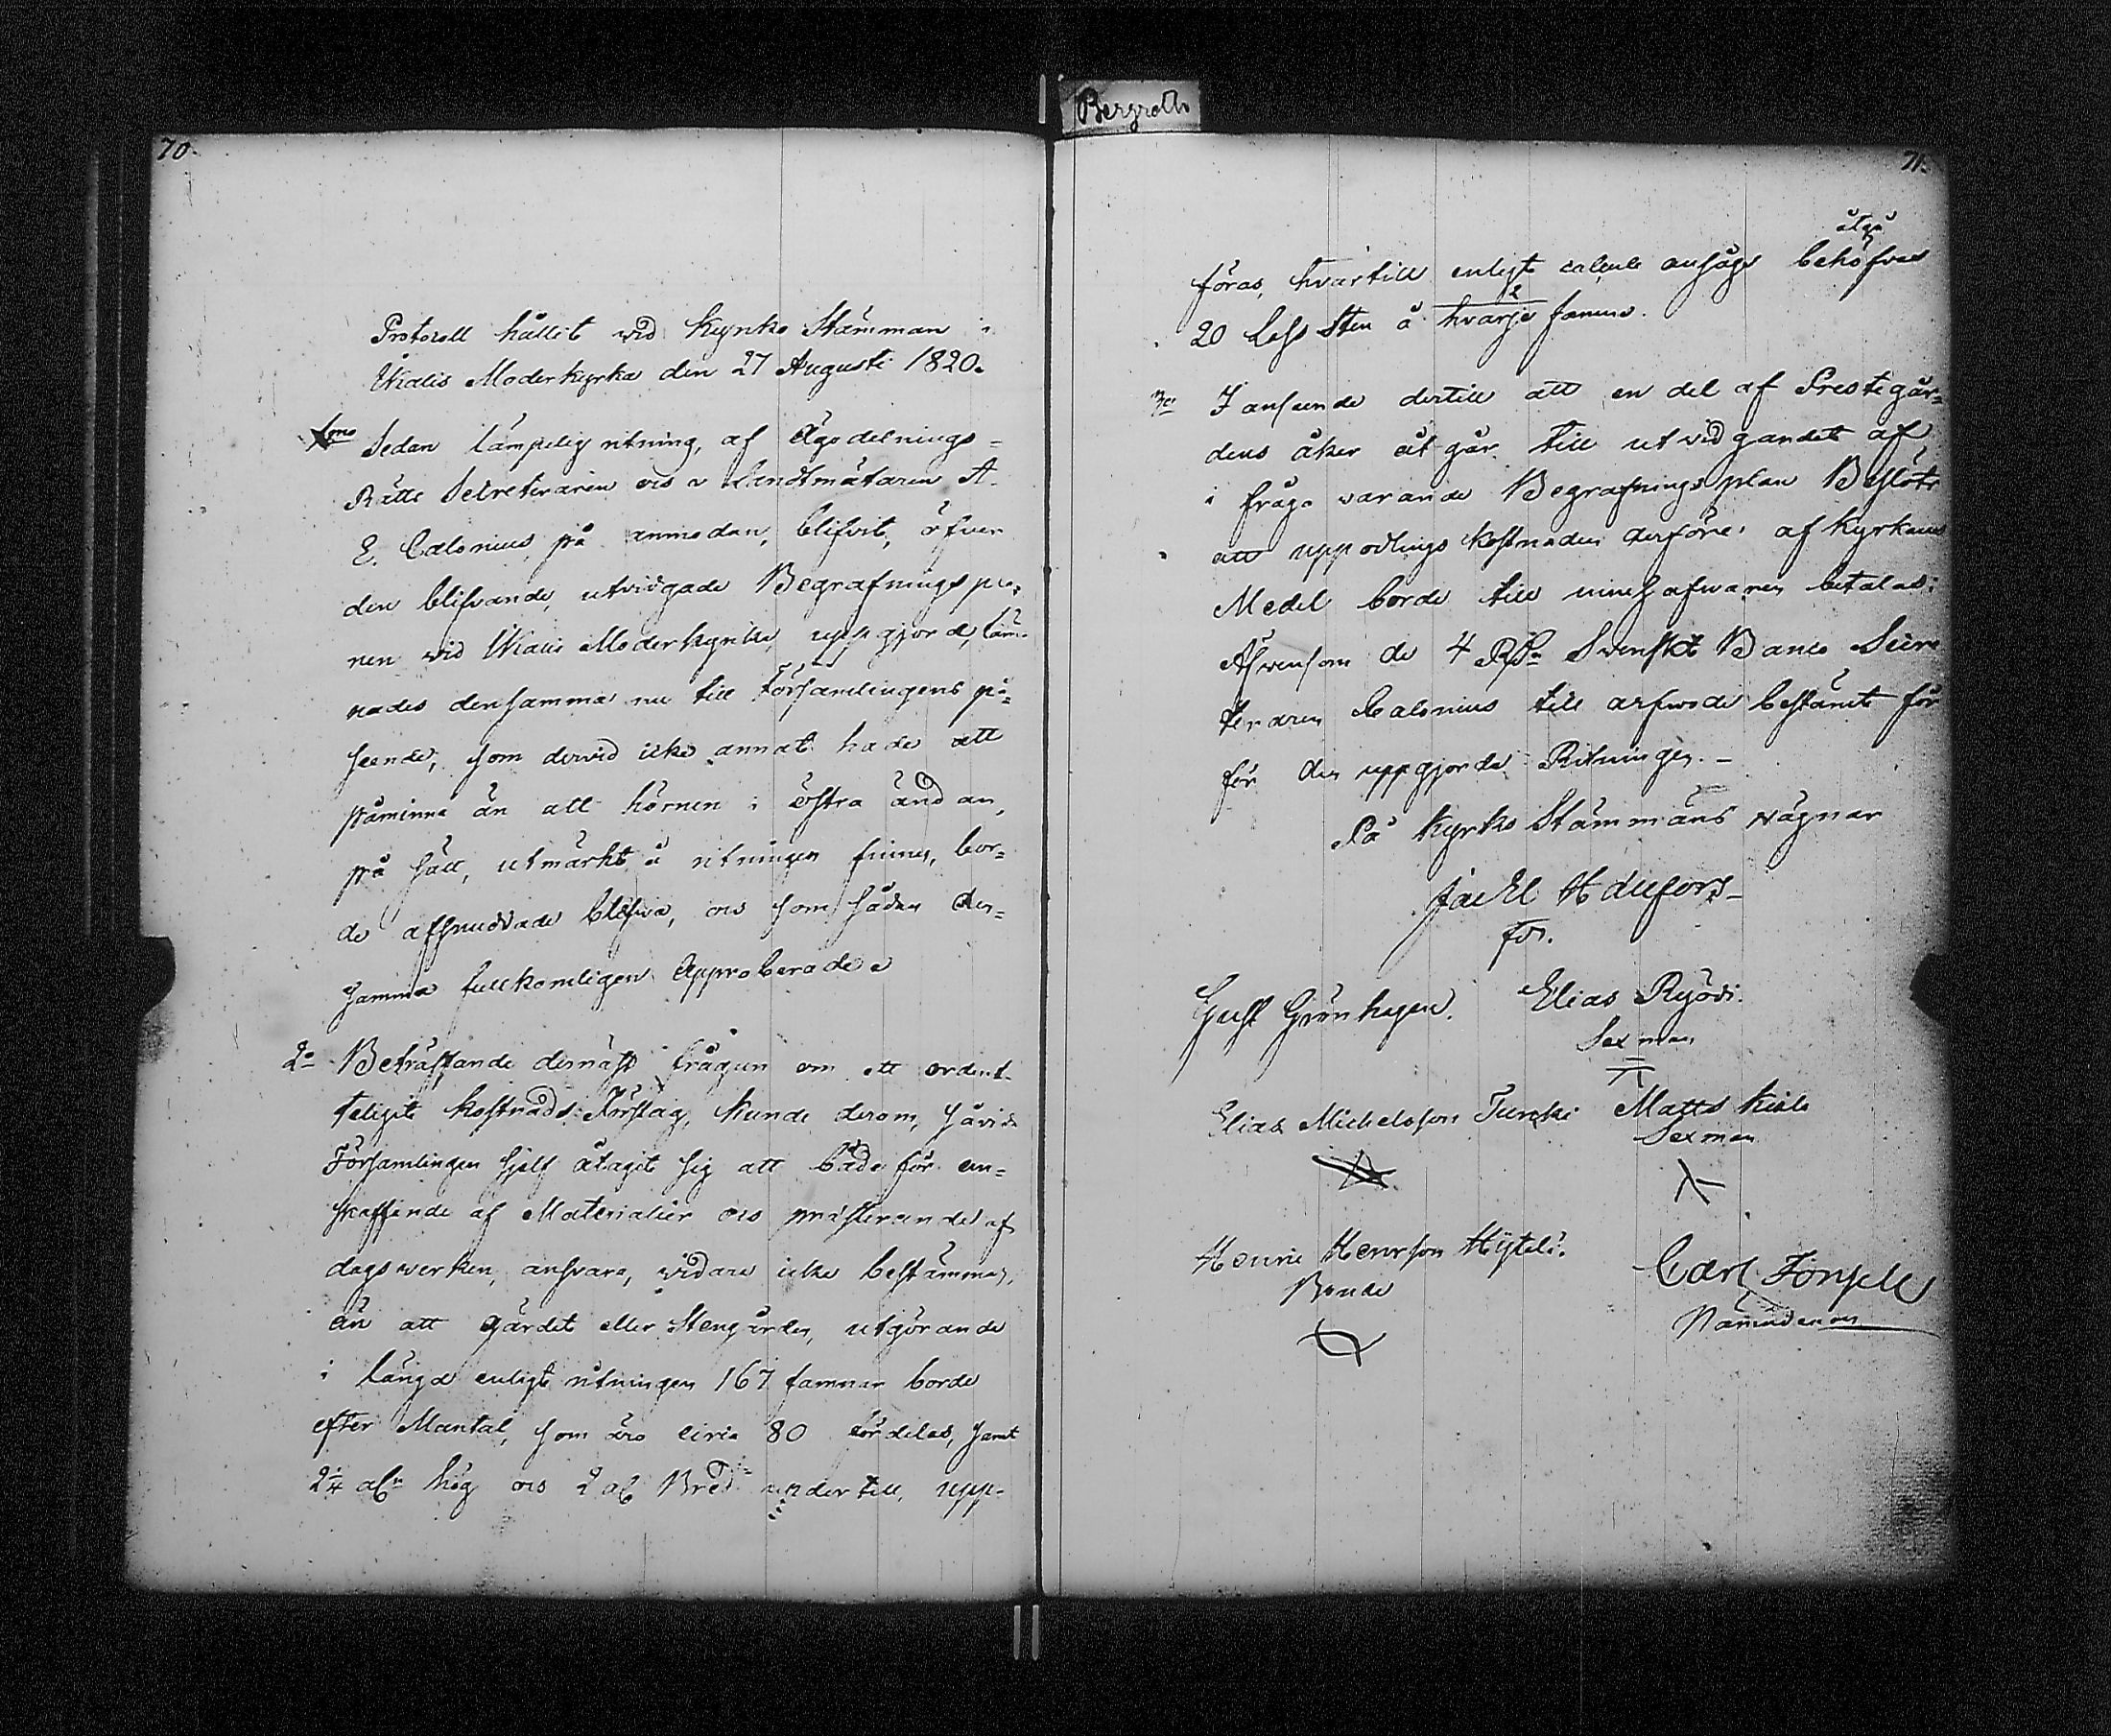 Bergroth
70.
Protocoll hållit vid Kyrko Stämman i
Ikalis Moderkyrka den 27 Augusti 1820.
1mo Sedan lämpelig ritning, af Ägodelnings-
Rätts Secreteraren och Landtmätaren A.
E. Calonius, på anmodan, blifvit, öfver
den blifvande, utvidgade Begrafningspla-
nen vid Ikalis Moderkyrka, uppgjord, läm-
nades densamma nu till Församlingens på-
seende, som dervid icke annat hade att
påminna än att hörnen i östra ändan,
på sätt, utmärkt å ritningen finnes, bor-
de afsnuddade blifva, och som sådan den-
samma fullkomligen Approberade
2o Beträffande dernäst frågan om ett ordent-
teligit kostnads Förslag, kunde derom, såvida
Församlingen sjelf åtagit sig att både för an-
skaffande af Materialier och præsterandet af
dagsverken, ansvara, vidare icke bestämmas,
än att gärdet eller Stengärden, utgörande
i längd enligt ritningen 167 famnar borde
efter Mantal, som äro circa 80 fördelas, samt
2 1/4 aln hög och 2 al Bred undertill, upp-
71.
åtgå
föras, hvartill enligt calcule ansågs behöfvas
2
20 Lass Sten å hvarje famn.
3o I anseende dertill att en del af Prestegår-
dens åker åtgår till utvidgandet af
i fråga varande Begrafningsplan Beslöts
att uppodlings kostnaden derföre af Kyrkans
Medel borde till innehafvaren betalas:
Äfvensom de 4 Rdr Svenskt Banco Secre
teraren Calonius till arfwode bestämt för
för den uppgjorda Ritningen.
På Kyrko Stämmans vägnar
Gust Grönhagen. Elias Ryödi.
Sexman
Elias Michelsson Turki Matts
Sexman
Henric Henrsson
Bonde
Carl
Nämndeman